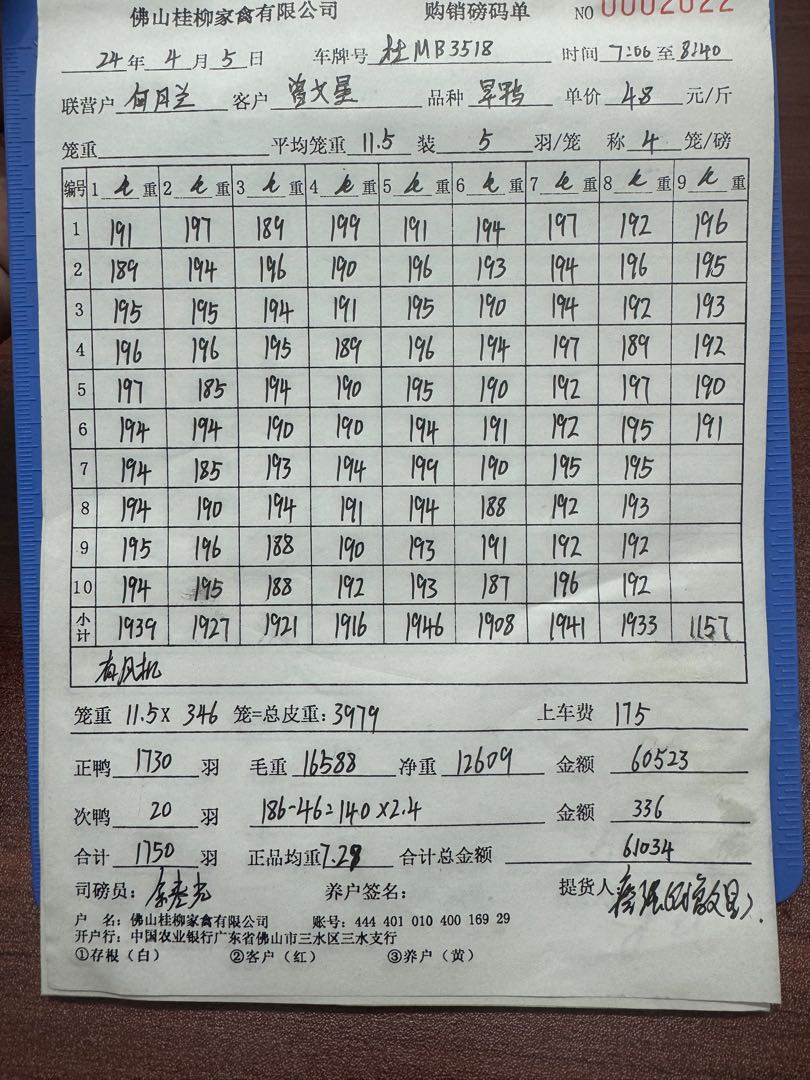 佛山桂柳家禽有限公司 购销磅码单 NO 0002022
24 年 4 月 5 日 车牌号 桂MB3518 时间 7:06 至 8:40
联营户 何月兰 客户 曾文星 品种 旱鸭 单价 4.8 元/斤
笼重 平均笼重 11.5 装 5 羽/笼 称 4 笼/磅
编号 1 毛 重 2 毛 重 3 毛 重 4 毛 重 5 毛 重 6 毛 重 7 毛 重 8 毛 重 9 毛 重
1 191 197 189 199 191 194 197 192 196
2 189 194 196 190 196 193 194 196 195
3 195 195 194 191 195 190 194 192 193
4 196 196 195 189 196 194 197 189 192
5 197 185 194 190 195 190 192 197 190
6 194 194 190 190 194 191 192 195 191
7 194 185 193 194 199 190 195 195
8 194 190 194 191 194 188 192 193
9 195 196 188 190 193 191 192 192
10 194 195 188 192 193 187 196 192
小计 1939 1927 1921 1916 1946 1908 1941 1933 1157
有风机
笼重 11.5 X 346 笼=总皮重: 3979 上车费 175
正鸭 1730 羽 毛重 16588 净重 12609 金额 60523
次鸭 20 羽 186-46=140×2.4 金额 336
合计 1750 羽 正品均重 7.29 合计总金额 61034
司磅员: 养户签名: 提货人:
户 名: 佛山桂柳家禽有限公司 账号: 444 401 010 400 169 29
开户行: 中国农业银行广东省佛山市三水区三水支行
①存根（白） ②客户（红） ③养户（黄）